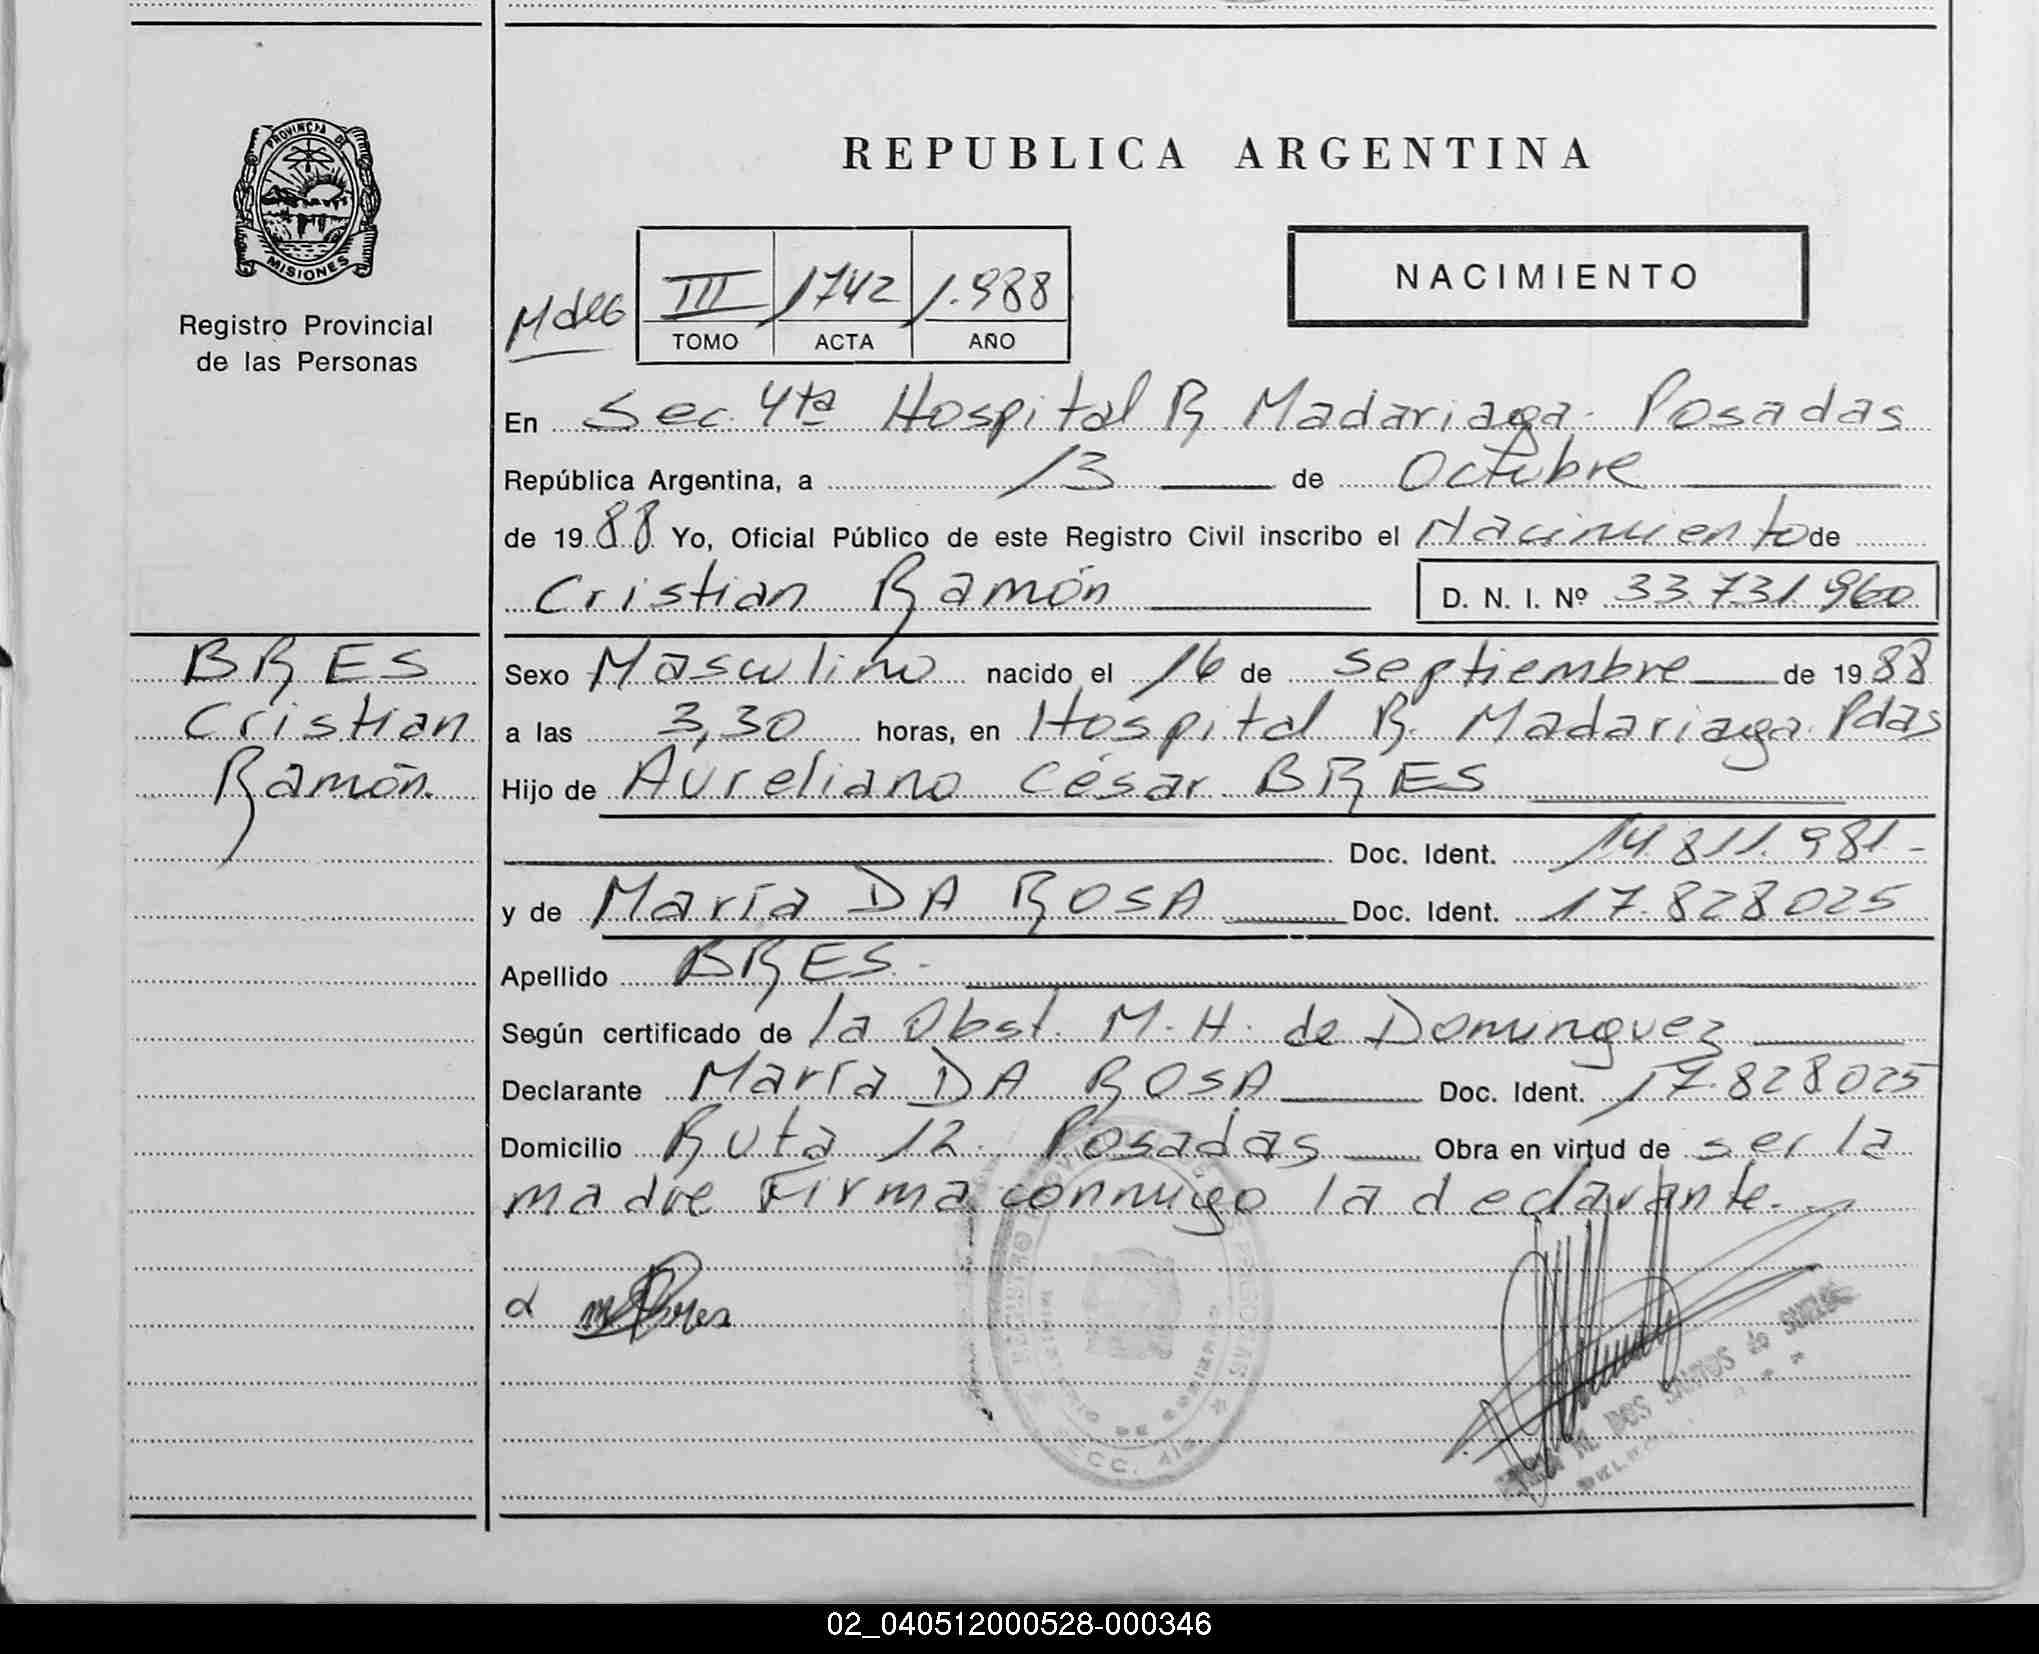 PROVINCIA DE
MISIONES
Registro Provincial
de las Personas
BRES
Cristian
Ramón.
REPUBLICA ARGENTINA
NACIMIENTO
III 1742 1.988
TOMO ACTA AÑO
En Sec. 4ta Hospital R Madariaga. Posadas
República Argentina, a 13 de Octubre
de 1988 Yo, Oficial Público de este Registro Civil inscribo el Nacimiento de
Cristian Ramón D. N. I. Nº 33.731.960
Sexo Masculino nacido el 16 de Septiembre de 1988
a las 3,30 horas, en Hospital R. Madariaga. Pdas
Hijo de Aureliano César BRES
Doc. Ident. 14.811.981-
y de María DA ROSA Doc. Ident. 17.828025
Apellido BRES.-
Según certificado de la Obst. M. H. de Dominguez
Declarante María DA ROSA Doc. Ident. 17.828025
Domicilio Ruta 12. Posadas Obra en virtud de ser la
madre Firma conmigo la declarante.
SECC. 4ta.
DOS SANTOS de
02_040512000528-000346